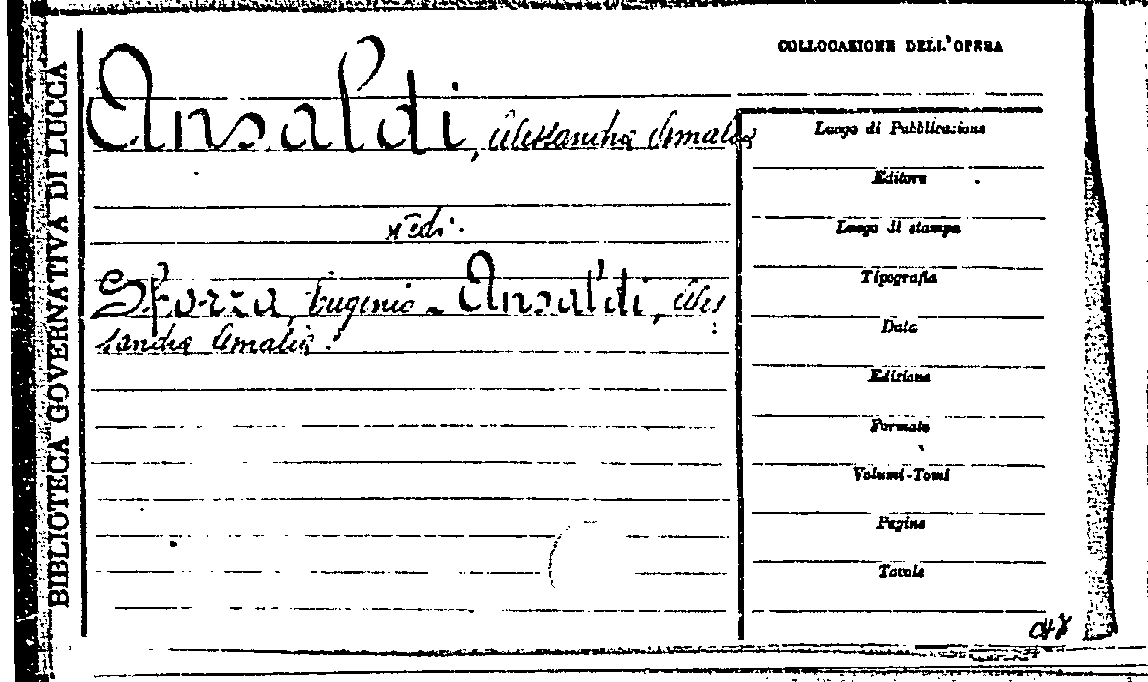 BIBLIOTECA GOVERNATIVA DI LUCCA
COLLOCAZIONE DELL'OPERA
Ansaldi, Alessandra Amalia
vedi.
Sforza, Eugenio - Ansaldi, Ales
sandra Amalia.
Luogo di Pubblicazione
Editore
Luogo di stampa
Tipografia
Data
Edizione
Formato
Volumi-Tomi
Pagine
Tavole